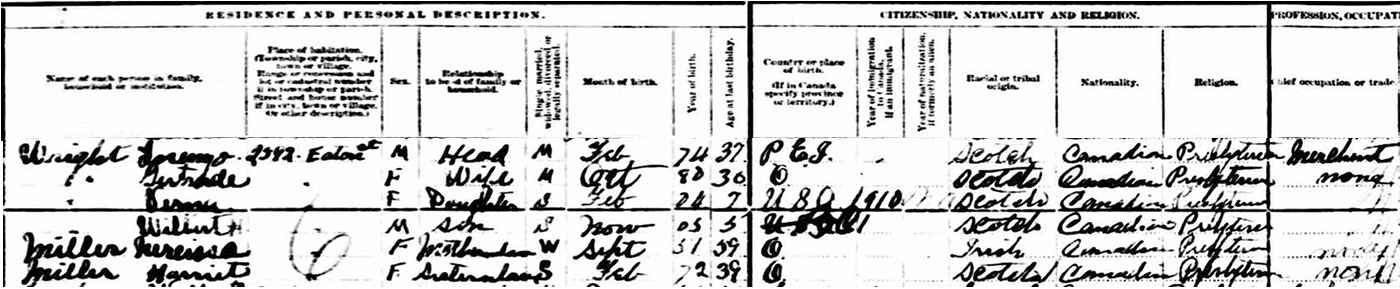 RESIDENCE AND PERSONAL DESCRIPTION. CITIZENSHIP, NATIONALITY AND RELIGION. PROFESSION, OCCUPAT
Name of each person in family, household or institution.
Place of habitation. (Township or parish, city, town or village. Range or concession and lot or cadastral number if in township or parish. Street and house number if in city, town or village. Or other description.)
Sex.
Relationship to head of family or household.
Single, married, widowed, divorced or legally separated.
Month of birth.
Year of birth.
Age at last birthday.
Country or place of birth. (If in Canada specify province or territory.)
Year of immigration to Canada, if an immigrant.
Year of naturalization, if formerly an alien.
Racial or tribal origin.
Nationality.
Religion.
Chief occupation or trade
Wright Lorenzo 2392 Eaton st M Head M Feb 74 37 P E I Scotch Canadian Presbyterian Merchant
" Gertrude F Wife M Oct 80 30 O Scotch Canadian Presbyterian none
" F Daughter S Feb 7 U S A 1910 Scotch Canadian
Wilbert H M Son S Nov 05 5 Scotch Canadian
Miller Nercissa F W Sept 51 59 O Irish Canadian
Miller Harriet F S Feb 72 39 O Scotch Canadian Presbyterian none